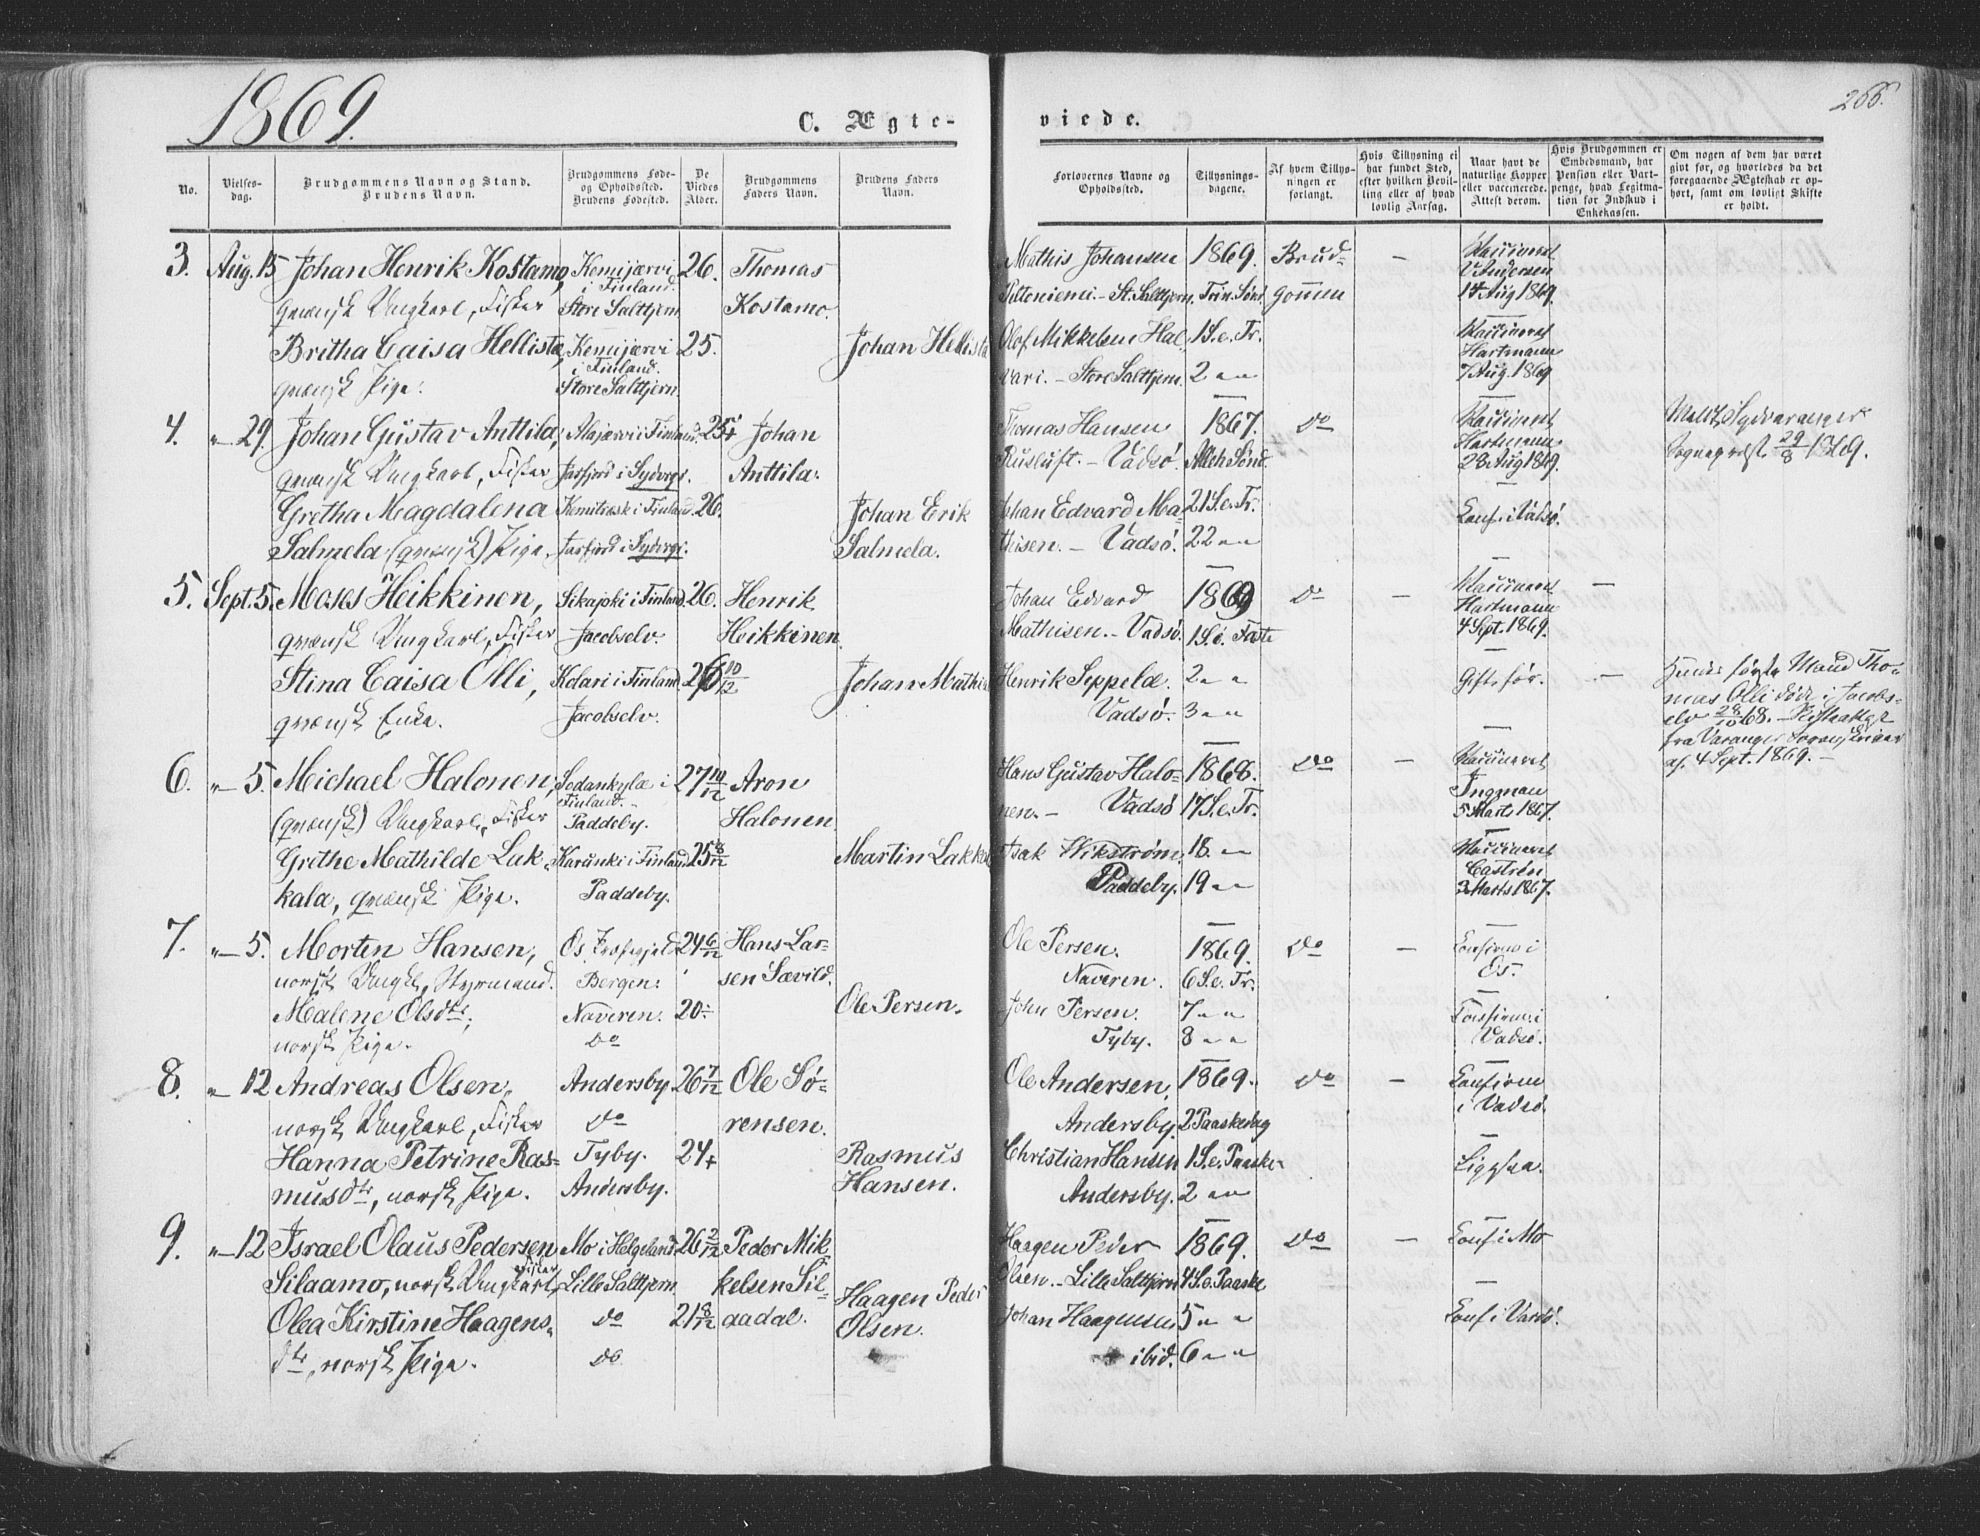 1869.
266.
C. Ægte-
viede.
No.
Vielses-
dag.
Brudgommens Navn og Stand.
Brudens Navn.
Brudgommens Føde-
og Opholdssted.
Brudens Fødested.
De
Viedes
Alder.
Brudgommens
Faders Navn.
Brudens Faders
Navn.
Forlovernes Navne og
Opholdssted.
Tillysnings-
dagene.
Af hvem Tillys-
ningen er
forlangt.
Hvis Tillysning ei
har fundet Sted,
efter hvilken Bevil-
ling eller af hvad
lovlig Aarsag.
Naar havt de
naturlige Kopper
eller vaccinerede.
Attest derom.
Hvis Brudgommen er
Embedsmand, har
Pension eller Vart-
penge, hvad Legitima-
tion for Indskud i
Enkekassen.
Om nogen af dem har været
gift før, og hvorledes da det
foregaaende Ægteskab er op-
hørt, samt om lovligt Skifte
er holdt.
3. Aug. 15 Johan Henrik Kostamo, Kemijærvi i Finland. 26. Thomas
qvænsk Ungkarl, Fisker Store Salttjern. Kostamo.
Britha Caisa Hellista, Kemijærvi i Finland. 25. Johan Hellista
qvænsk Pige. Store Salttjern.
Mathis Johansen 1869. Brud- — Vaccineret
Pittoniemi. - St. Salttjern. Trin. Sønd. gommen V. Andersen
14 Aug 1869.
Olof Mikkelsen Hal- 1 S. e. Tr. Vaccineret
Hartmann
vari. - Store Salttjern. 2 " " 7 Aug. 1869
4. " 29. Johan Gustav Anttila, Alajærvi i Finland. 25 Johan
qvænsk Ungkarl, Fisker Jarfjord i Sydvgr. Anttila.
Gretha Magdalena Kemitræsk i Finland 26. Johan Erik
Salmela (qvænsk) Pige. Jarfjord i Sydvgr. Salmela.
Thomas Hansen 1867. do Vaccineret
Hartmann
Rusluft. - Vadsø. Alleh. Sønd. 28 Aug 1869.
Johan Edvard Ma- 21 S. e. Tr. Conf. i Vadsø.
theisen. - Vadsø. 22 " "
Sydvaranger
29/8 1869.
5. Sept. 5. Moses Heikkinen, Sikajoki i Finland. 26. Henrik
qvænsk Ungkarl, Fisker Jacobselv. Heikkinen.
Stina Caisa Olli, Kolari i Finland 26 10/12 Johan Mathis
qvænsk Enke. Jacobselv.
Johan Edvard 1869 do — Vaccineret —
Hartmann
Mathisen. - Vadsø. 1 S. i Faste 4 Sept. 1869.
Henrik Seppelæ. 2 " " Gift før. —
Vadsø. 3 " "
Hendes første Mand Tho-
mas Olli døde i Jacobs-
elv 28/10 68. - Skifteattest
fra Varanger Sorenskriver
af 4 Sept. 1869. -
6. " 5. Michael Halonen, Sodankylæ i Finland. 27 10/12 Aron
(qvænsk) Ungkarl, Fisker Paddeby. Halonen
Grethe Mathilde Lak- Karunki i Finland 25 8/12 Martin Lakkala
kala, qvænsk Pige. Paddeby.
Hans Gustav Halo- 1868. do — Vaccineret
Ingman
nen. - Vadsø 17 S. e. Tr. 5 Marts 1867.
Isak Wikstrøm. 18 " Vaccineret
Castrén
Paddeby. 19 " " 3 Marts 1867.
7. " 5. Morten Hansen, Os, 24 6/12 Hans Lar-
norsk Ungk., Styrmand. Bergen. sen Sævild.
Malene Olsdtr, Naveren. 20 Ole Persen.
norsk Pige. do
Ole Persen. 1869. do — Confirm. i
Naveren. 6 S. e. Tr. Os.
John Persen. 7 " " Confirm. i
Tyby. 8 " " Vadsø.
8. " 12 Andreas Olsen, Andersby. 26 7/12 Ole Sø-
norsk Ungkarl, Fisker do rensen.
Hanna Petrine Ras- Tyby. 24 Rasmus
musdtr, norsk Pige. Andersby. Hansen.
Ole Andersen, 1869. do — Confirm
Andersby. 2 Paaskedag i Vadsø.
Christian Hansen 1 S. e. Paaske Ligesaa.
Andersby. 2 " "
9. " 12 Israel Olaus Pedersen Mo i Helgeland 26 2/12 Peder Mik-
Silaamo, norsk Ungkarl, Fisker Lille Salttjern kelsen Sil-
Olea Kirstine Haagens- do 21 8/12 aadal. Haagen Peder
dtr, norsk Pige. do Olsen.
Haagen Peder 1869. do — Conf. i Mo
Olsen. - Lille Salttjern 4 S. e. Paaske
Johan Haagensen 5 " " Conf. i Vadsø.
ibid. 6 " "